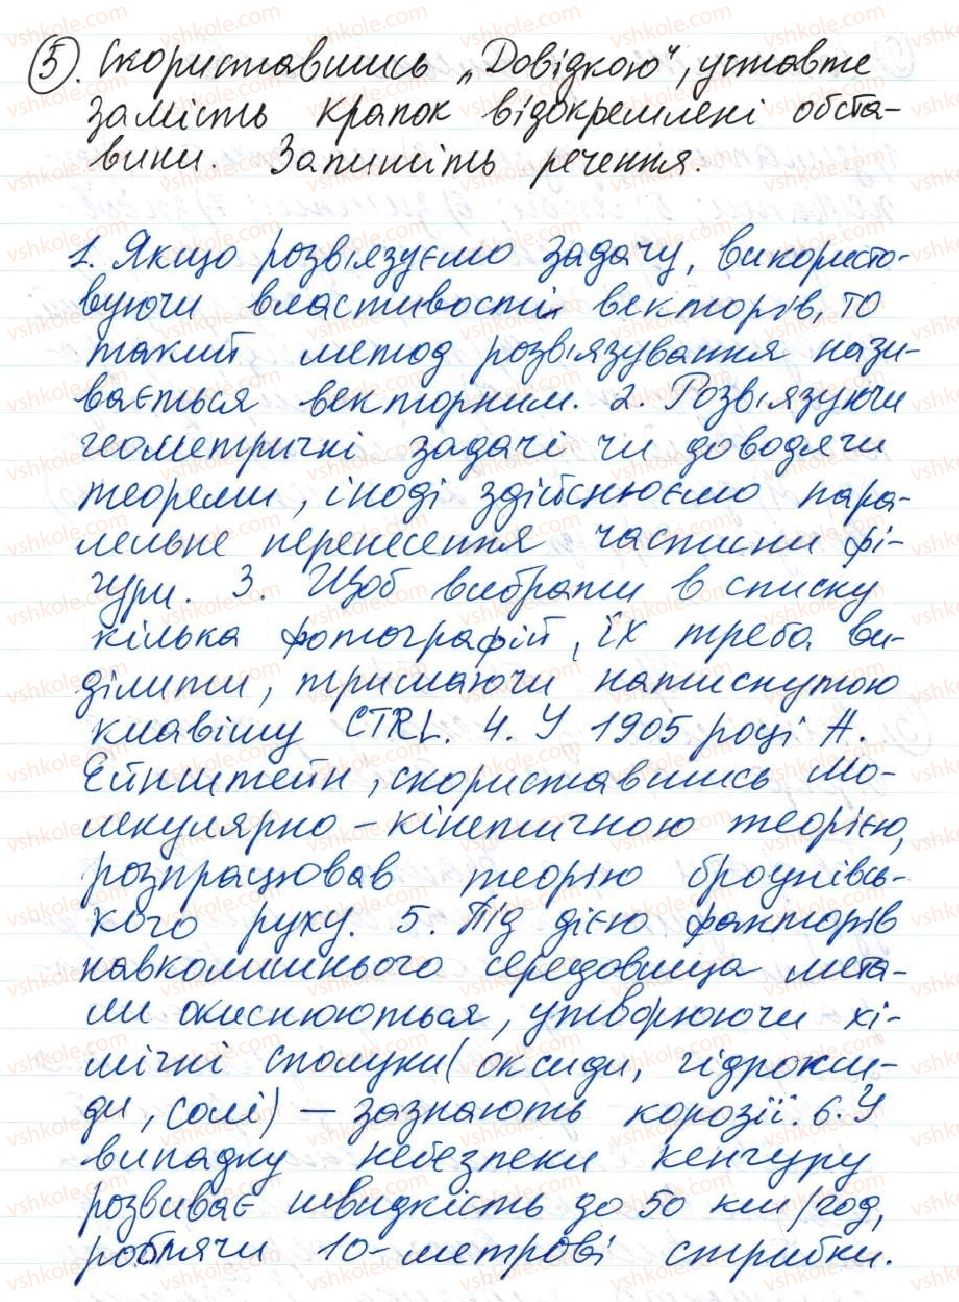 5. Скориставшись „Довідкою", уставте
замість крапок відокремлені обста-
вини. Запишіть речення.
1. Якщо розв'язуємо задачу, використо-
вуючи властивості векторів, то
такий метод розв'язування нази-
вається векторним. 2. Розв'язуючи
геометричні задачі чи доводячи
теореми, іноді здійснюємо пара-
лельне перенесення частини фі-
гури. 3. Щоб вибрати в списку
кілька фотографій, їх треба ви-
ділити, тримаючи натиснутою
клавішу CTRL. 4. У 1905 році А.
Ейнштейн, скориставшись мо-
лекулярно-кінетичною теорією,
розпрацював теорію броунівсь-
кого руху. 5. Під дією факторів
навколишнього середовища мета-
ли окиснюються, утворюючи хі-
мічні сполуки (оксиди, гідрокси-
ди, солі) – зазнають корозії. 6. У
випадку небезпеки кенгуру
розвиває швидкість до 50 км/год,
роблячи 10-метрові стрибки.